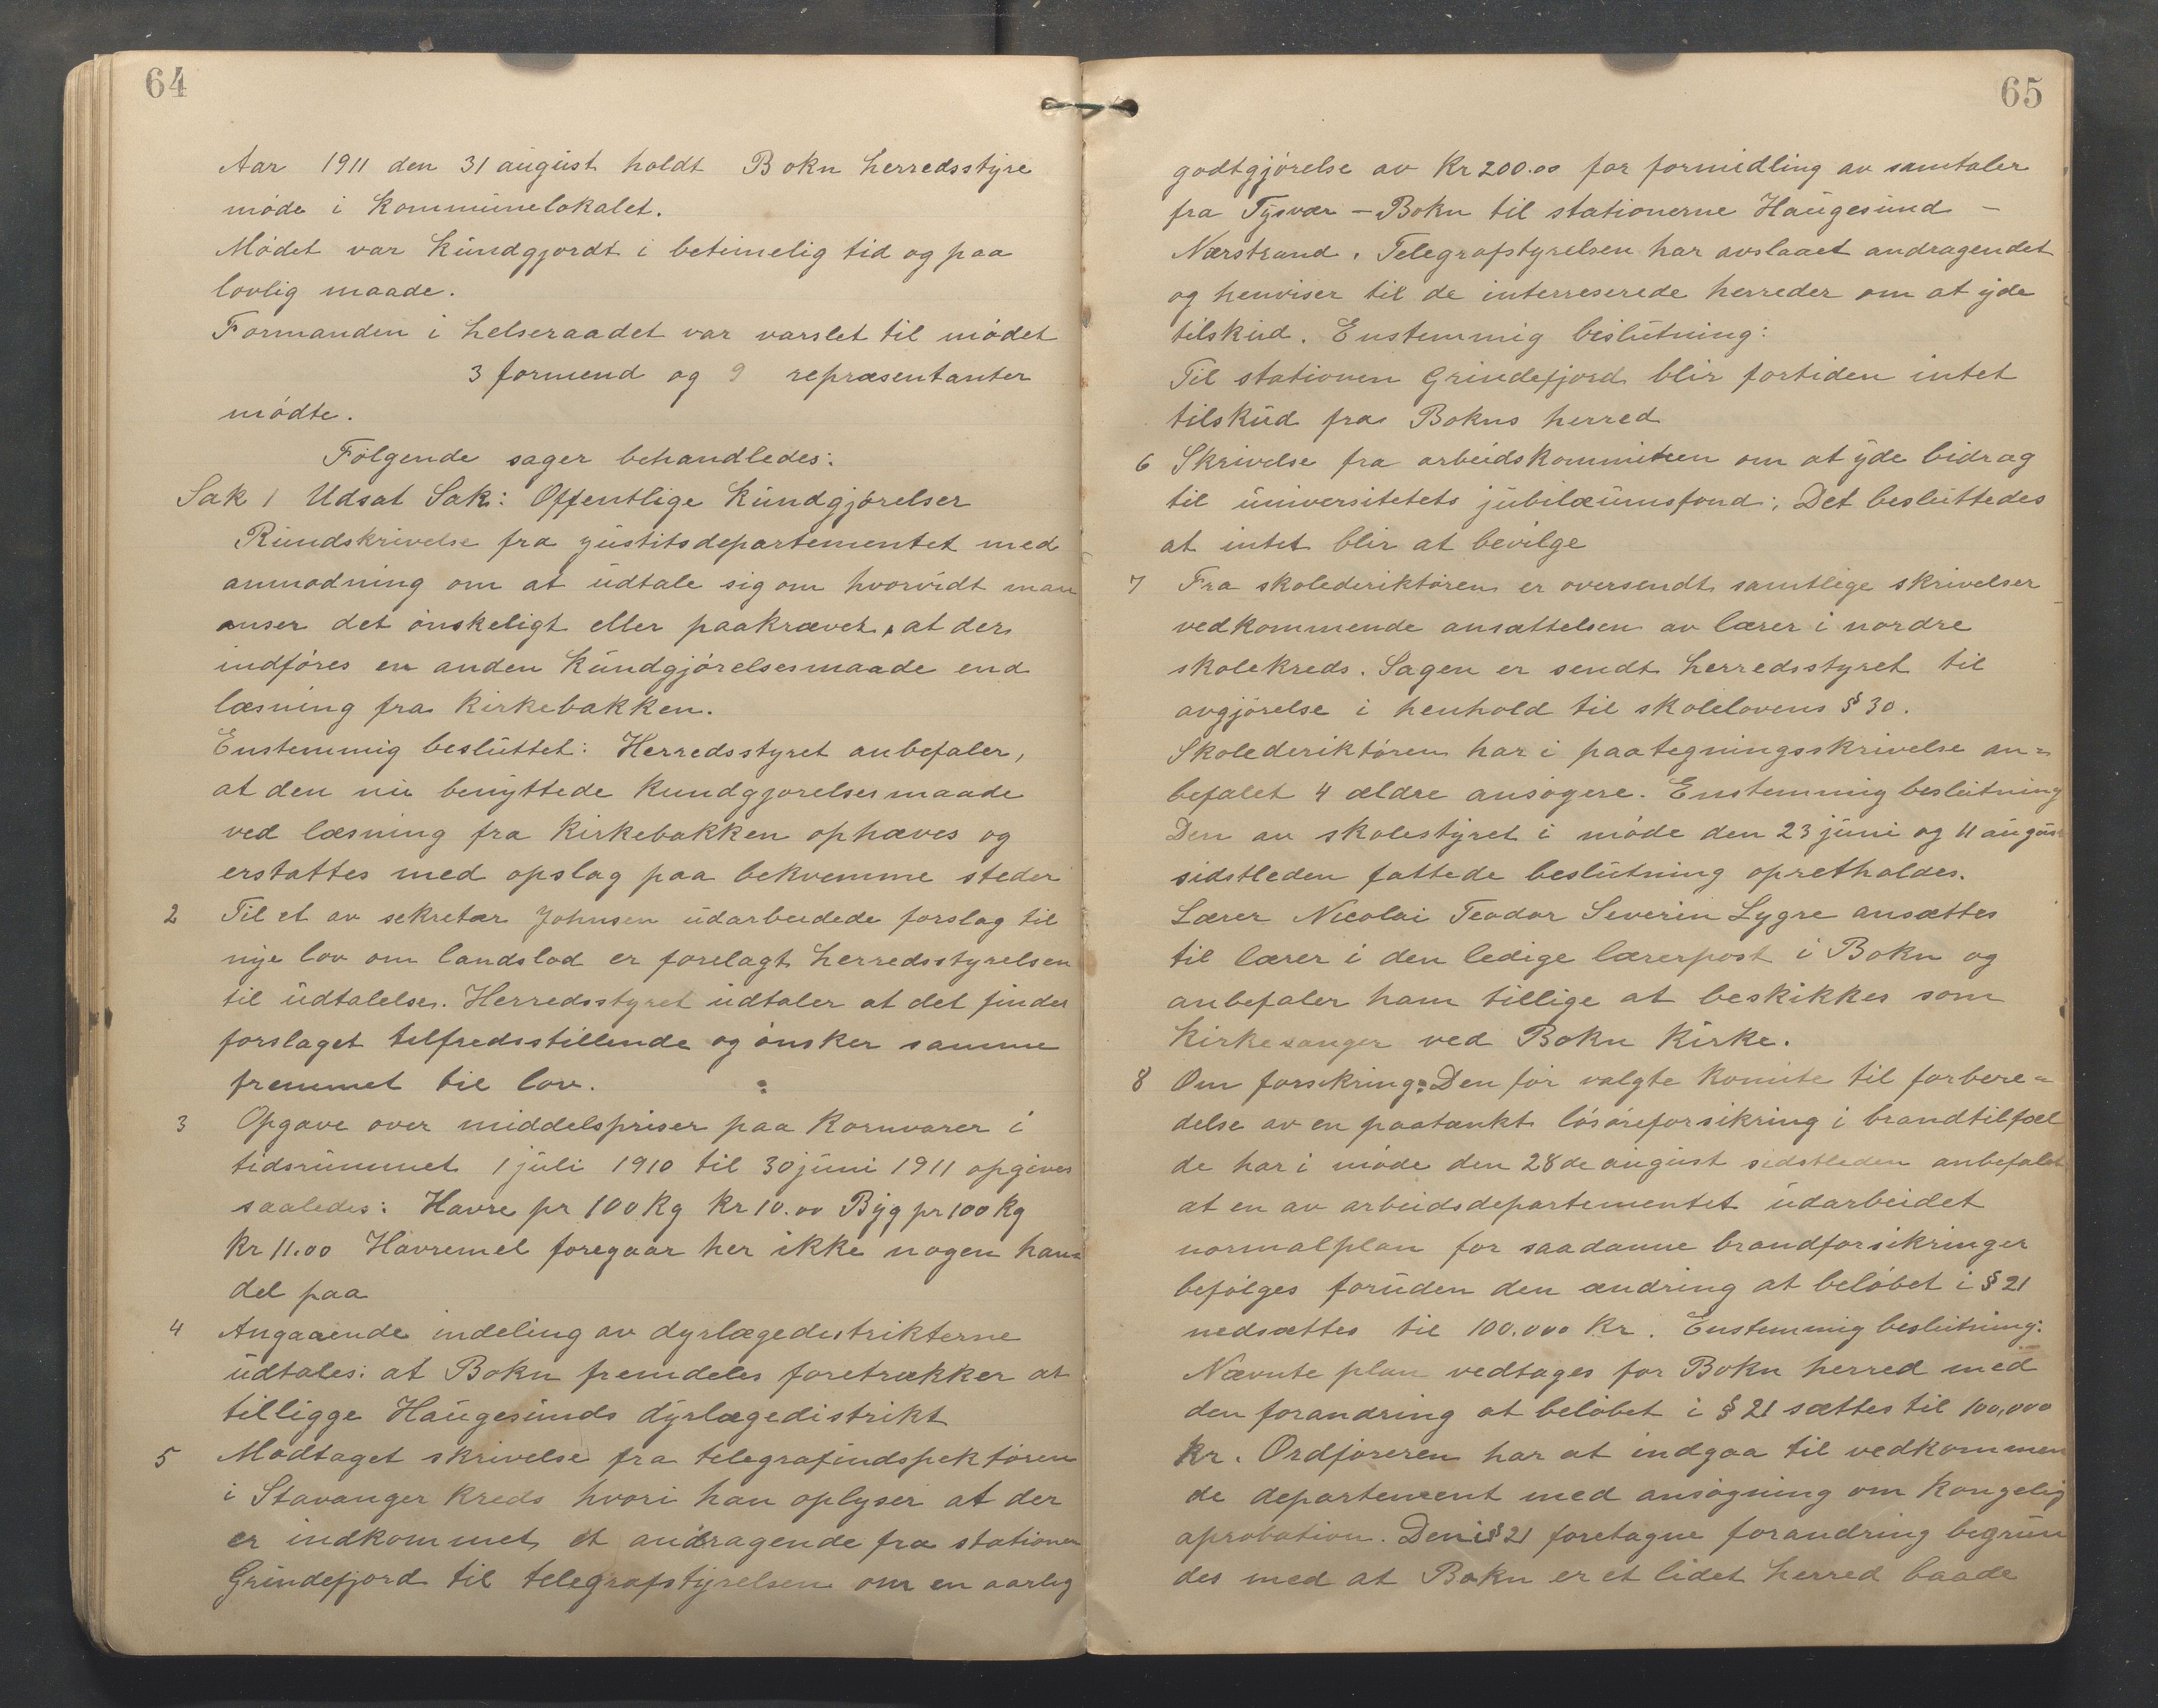 64
Aar 1911 den 31 august holdt Bokn herredsstyre
møde i kommunelokalet.
Mødet var kundgjordt i betimelig tid og paa
lovlig maade.
Formanden i helseraadet var varslet til mødet
3 formend og 9 repræsentanter
mødte.
Følgende sager behandledes:
Sak 1 Udsat Sak: Offentlige kundgjørelser
Rundskrivelse fra justitsdepartementet med
anmodning om at udtale sig om hvorvidt man
anser det ønskeligt eller paakrævet, at der
indføres en anden kundgjørelsesmaade end
læsning fra kirkebakken.
Enstemmig besluttet: Herredsstyret anbefaler,
at den nu benyttede kundgjorelsesmaade
ved læsning fra kirkebakken ophæves og
erstattes med opslag paa bekvemme steder
2 Til et av sekretær Johnsen udarbeidede forslag til
nye lov om landslod er forelagt herredsstyrelsen
til udtalelse. Herredsstyret udtaler at det finder
forslaget telfredsstillende og ønsker samme
fremmet til lov.
3 Opgave over middelspriser paa kornvarer i
tidsrummet 1 juli 1910 til 30 juni 1911 opgives
saaledes: Havre pr 100 kg kr 10.00 Byg pr 100 kg
kr 11.00 Havremel foregaar her ikke nogen han=
del paa
4 Angaaende indeling av dyrlægedistrikterne
udtales: at Bokn fremdeles foretrækker at
tilligge Haugesunds dyrlægedistrikt
5 Modtaget skrivelse fra telegrafindspektøren
i Stavanger kreds hvori han oplyser at der
er indkommet et andragende fra stationen
Grindefjord til telegrafstyrelsen om en aarlig
65
godtgjørelse av Kr 200.00 for formidling av samtaler
fra Tysvær - Bokn til stationerne Haugesund -
Nærstrand. Telegrafstyrelsen har avslaaet andragendet
og henviser til de interreserede herreder om at yde
tilskud. Enstemmig beslutning:
Til stationen Grindefjord blir fortiden intet
tilskud fra Bokns herred
6 Skrivelse fra arbeidskommiteen om at yde bidrag
til universitetets jubilæumsfond; Det besluttedes
at intet blir at bevilge
7 Fra skolederiktøren er oversendt samtlige skrivelser
vedkommende ansættelsen av lærer i nordre
skolekreds. Sagen er sendt herredsstyret til
avgjørelse i henhold til skolelovens § 30.
Skolederiktøren har i paategningsskrivelse an=
befalet 4 ældre ansøgere. Enstemmig beslutning
Den av skolestyret i møde den 23 juni og 11 august
sidstleden fattede beslutning opretholdes.
Lærer Nicolai Teodor Severin Lygre ansættes
til lærer i den ledige lærerpost i Bokn og
anbefaler ham tillige at beskikkes som
kirkesanger ved Bokn kirke.
8 Om forsikring: Den før valgte komite til forbere=
delse av en paatænkt løsøreforsikring i brandtilfæl
de har i møde den 28de august sidstleden anbefalet
at en av arbeidsdepartementet udarbeidet
normalplan for saadanne brandforsikringer
befølges foruden den ændring at beløbet i § 21
nedsættes til 100.000 Kr. Enstemmig beslutning:
Nævnte plan vedtages for Bokn herred med
den forandring at beløbet i § 21 sættes til 100,000
kr. Ordføreren har at indgaa til vedkommen
de departement med ansøgning om kongelig
aprobation. Den i § 21 foretagne forandring begrun
des med at Bokn er et lidet herred baade